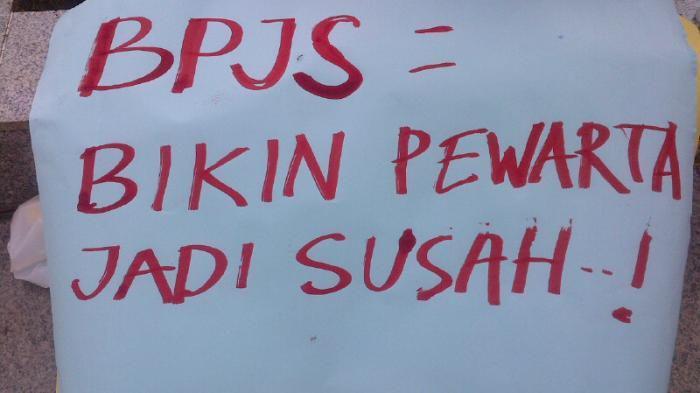 BPJS =
BIKIN PEWARTA
JADI SUSAH..!